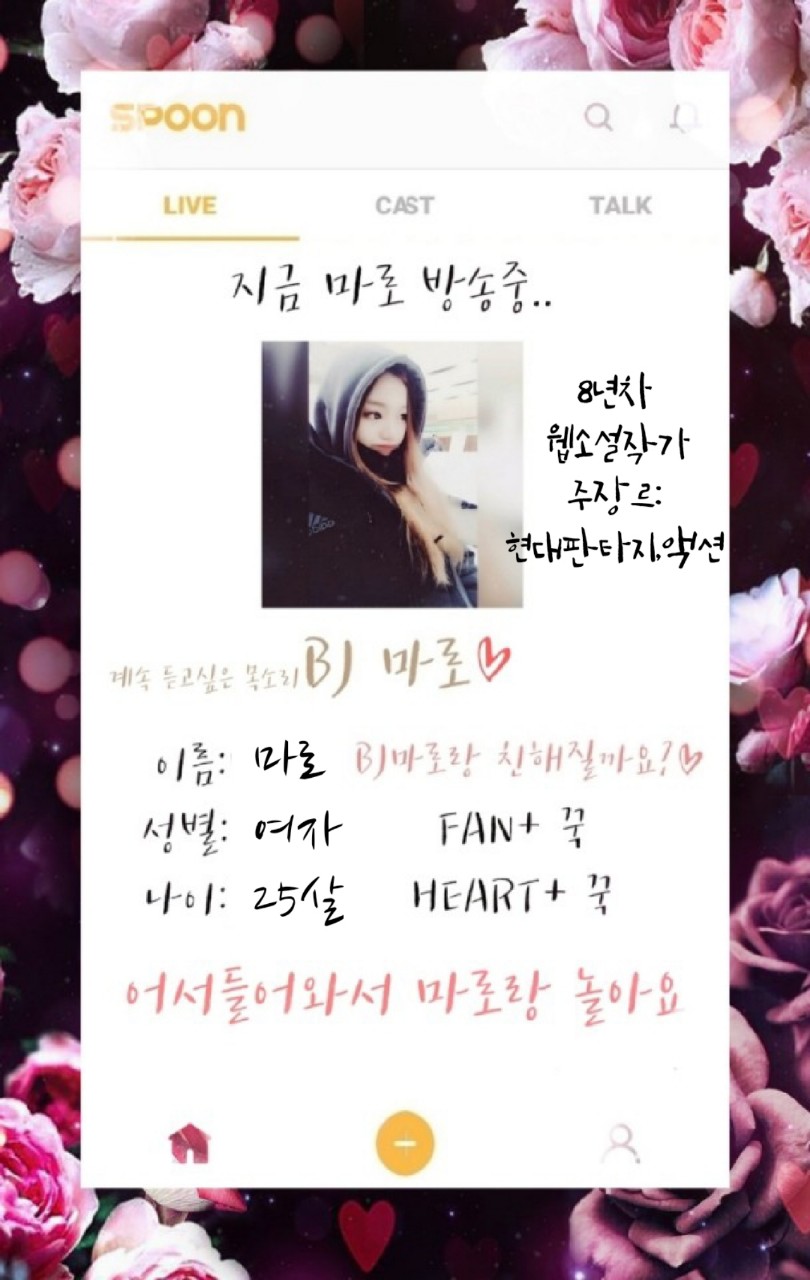 spoon
LIVE CAST TALK
지금 마로 방송중..
8년차
웹소설작가
주장르:
현대판타지,액션
계속 듣고싶은 목소리 BJ 마로
이름: 마로 BJ마로랑 친해질까요?
성별: 여자 FAN+ 꾹
나이: 25살 HEART+ 꾹
어서들어와서 마로랑 놀아요